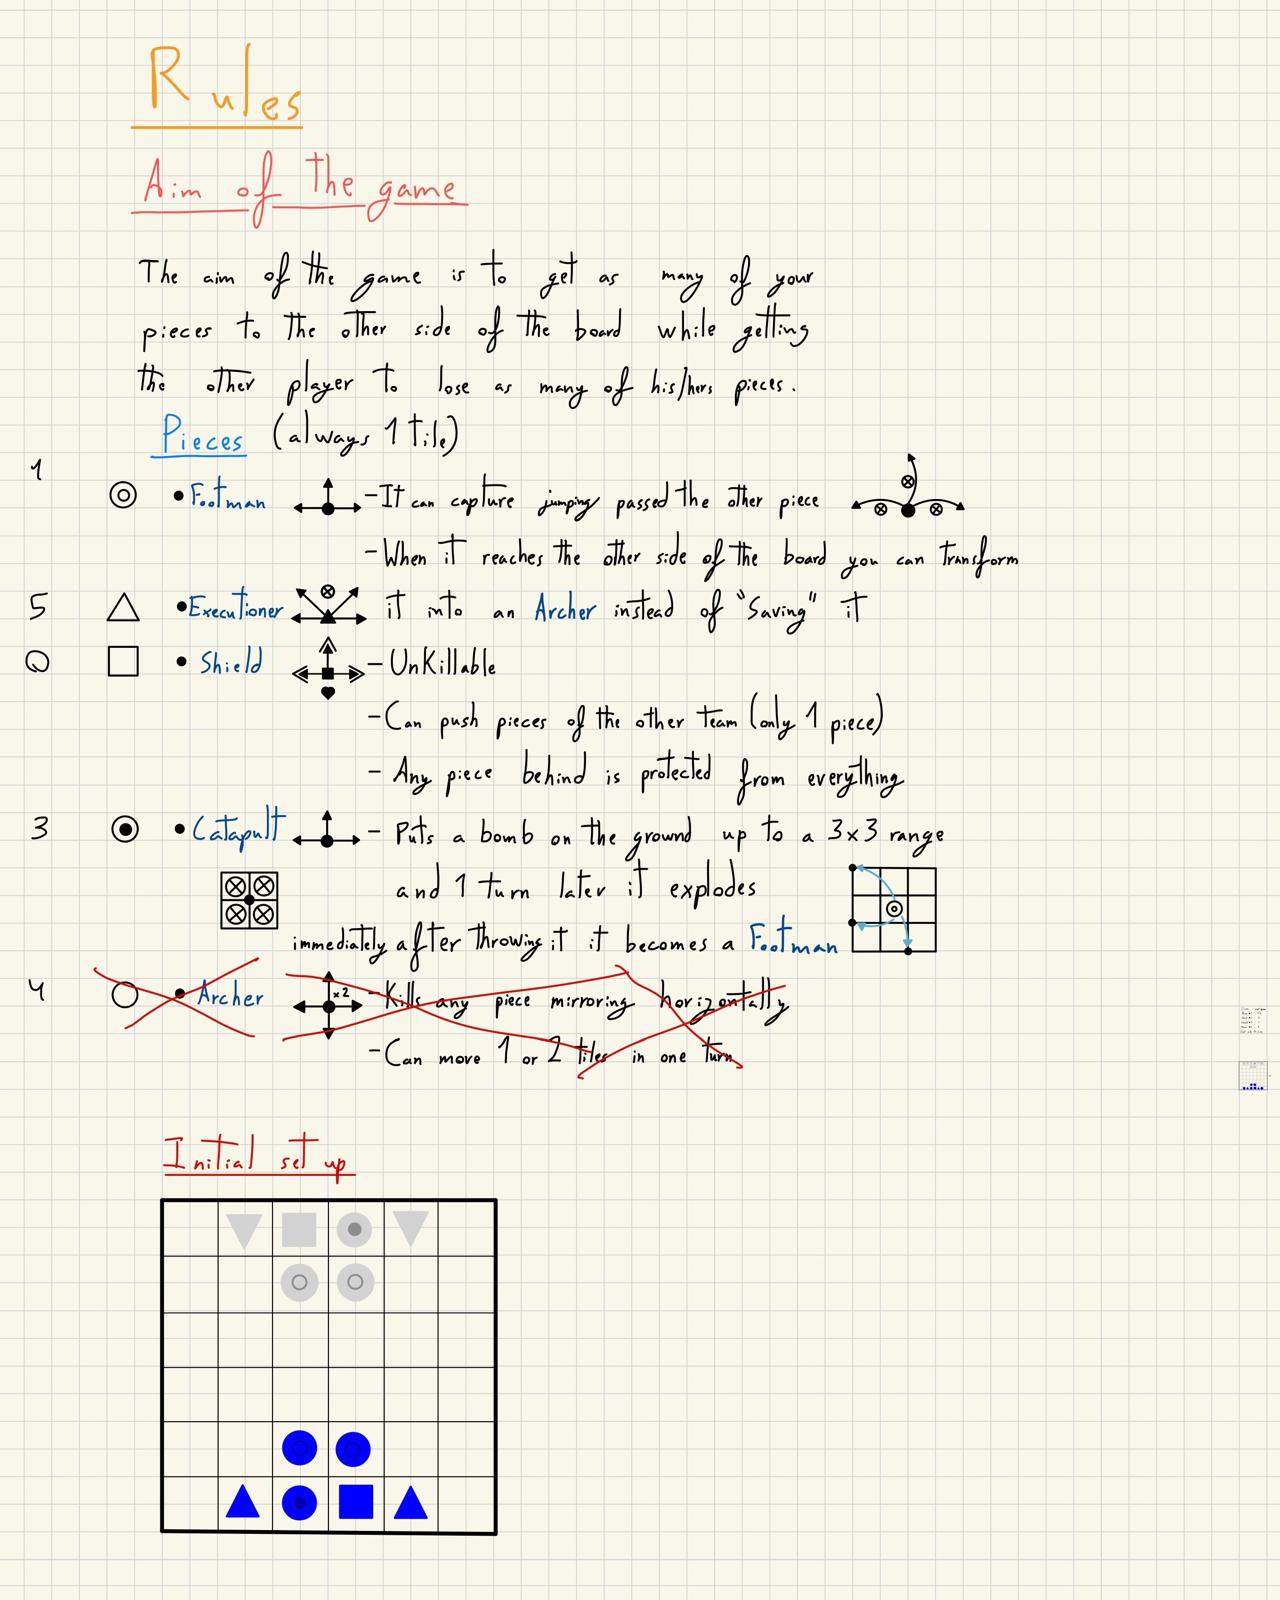 Rules
Aim of the game
The aim of the game is to get as many of your
pieces to the other side of the board while getting
the other player to lose as many of his/hers pieces.
Pieces (always 1 tile)
1
• Footman - It can capture jumping passed the other piece
- When it reaches the other side of the board you can transform
5 • Executioner it into an Archer instead of "Saving" it
0 • Shield - UnKillable
- Can push pieces of the other team (only 1 piece)
- Any piece behind is protected from everything
3 • Catapult - Puts a bomb on the ground up to a 3x3 range
and 1 turn later it explodes
immediately after throwing it it becomes a Footman
4 • Archer x2 - Kills any piece mirroring horizontally
- Can move 1 or 2 tiles in one turn
Initial set up